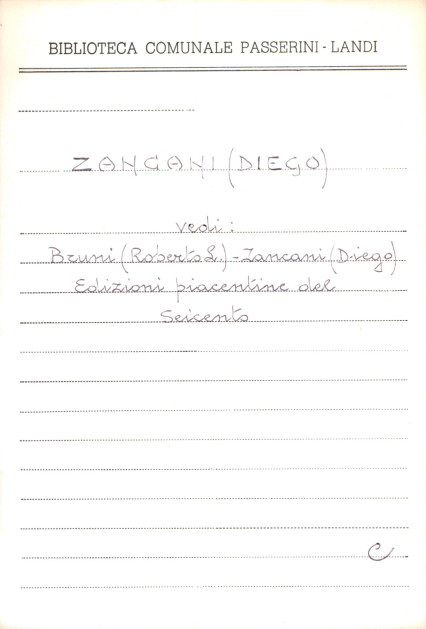 BIBLIOTECA COMUNALE PASSERINI - LANDI
ZANCANI (DIEGO)
vedi:
Bruni (Roberto L.) - Zancani (Diego)
Edizioni piacentine del
Seicento
C